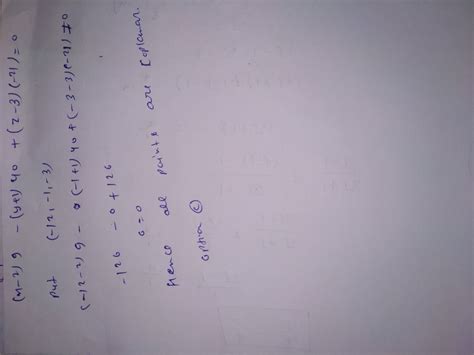 (x-2) 9 - (y+1) 40 + (z-3) (-21) = 0
Put (-12, -1, -3)
(-12-2) 9 - (-1+1) 40 + (-3-3) (-21) ≠ 0
-126 - 0 + 126
0 = 0
Hence all points are coplanar
option C